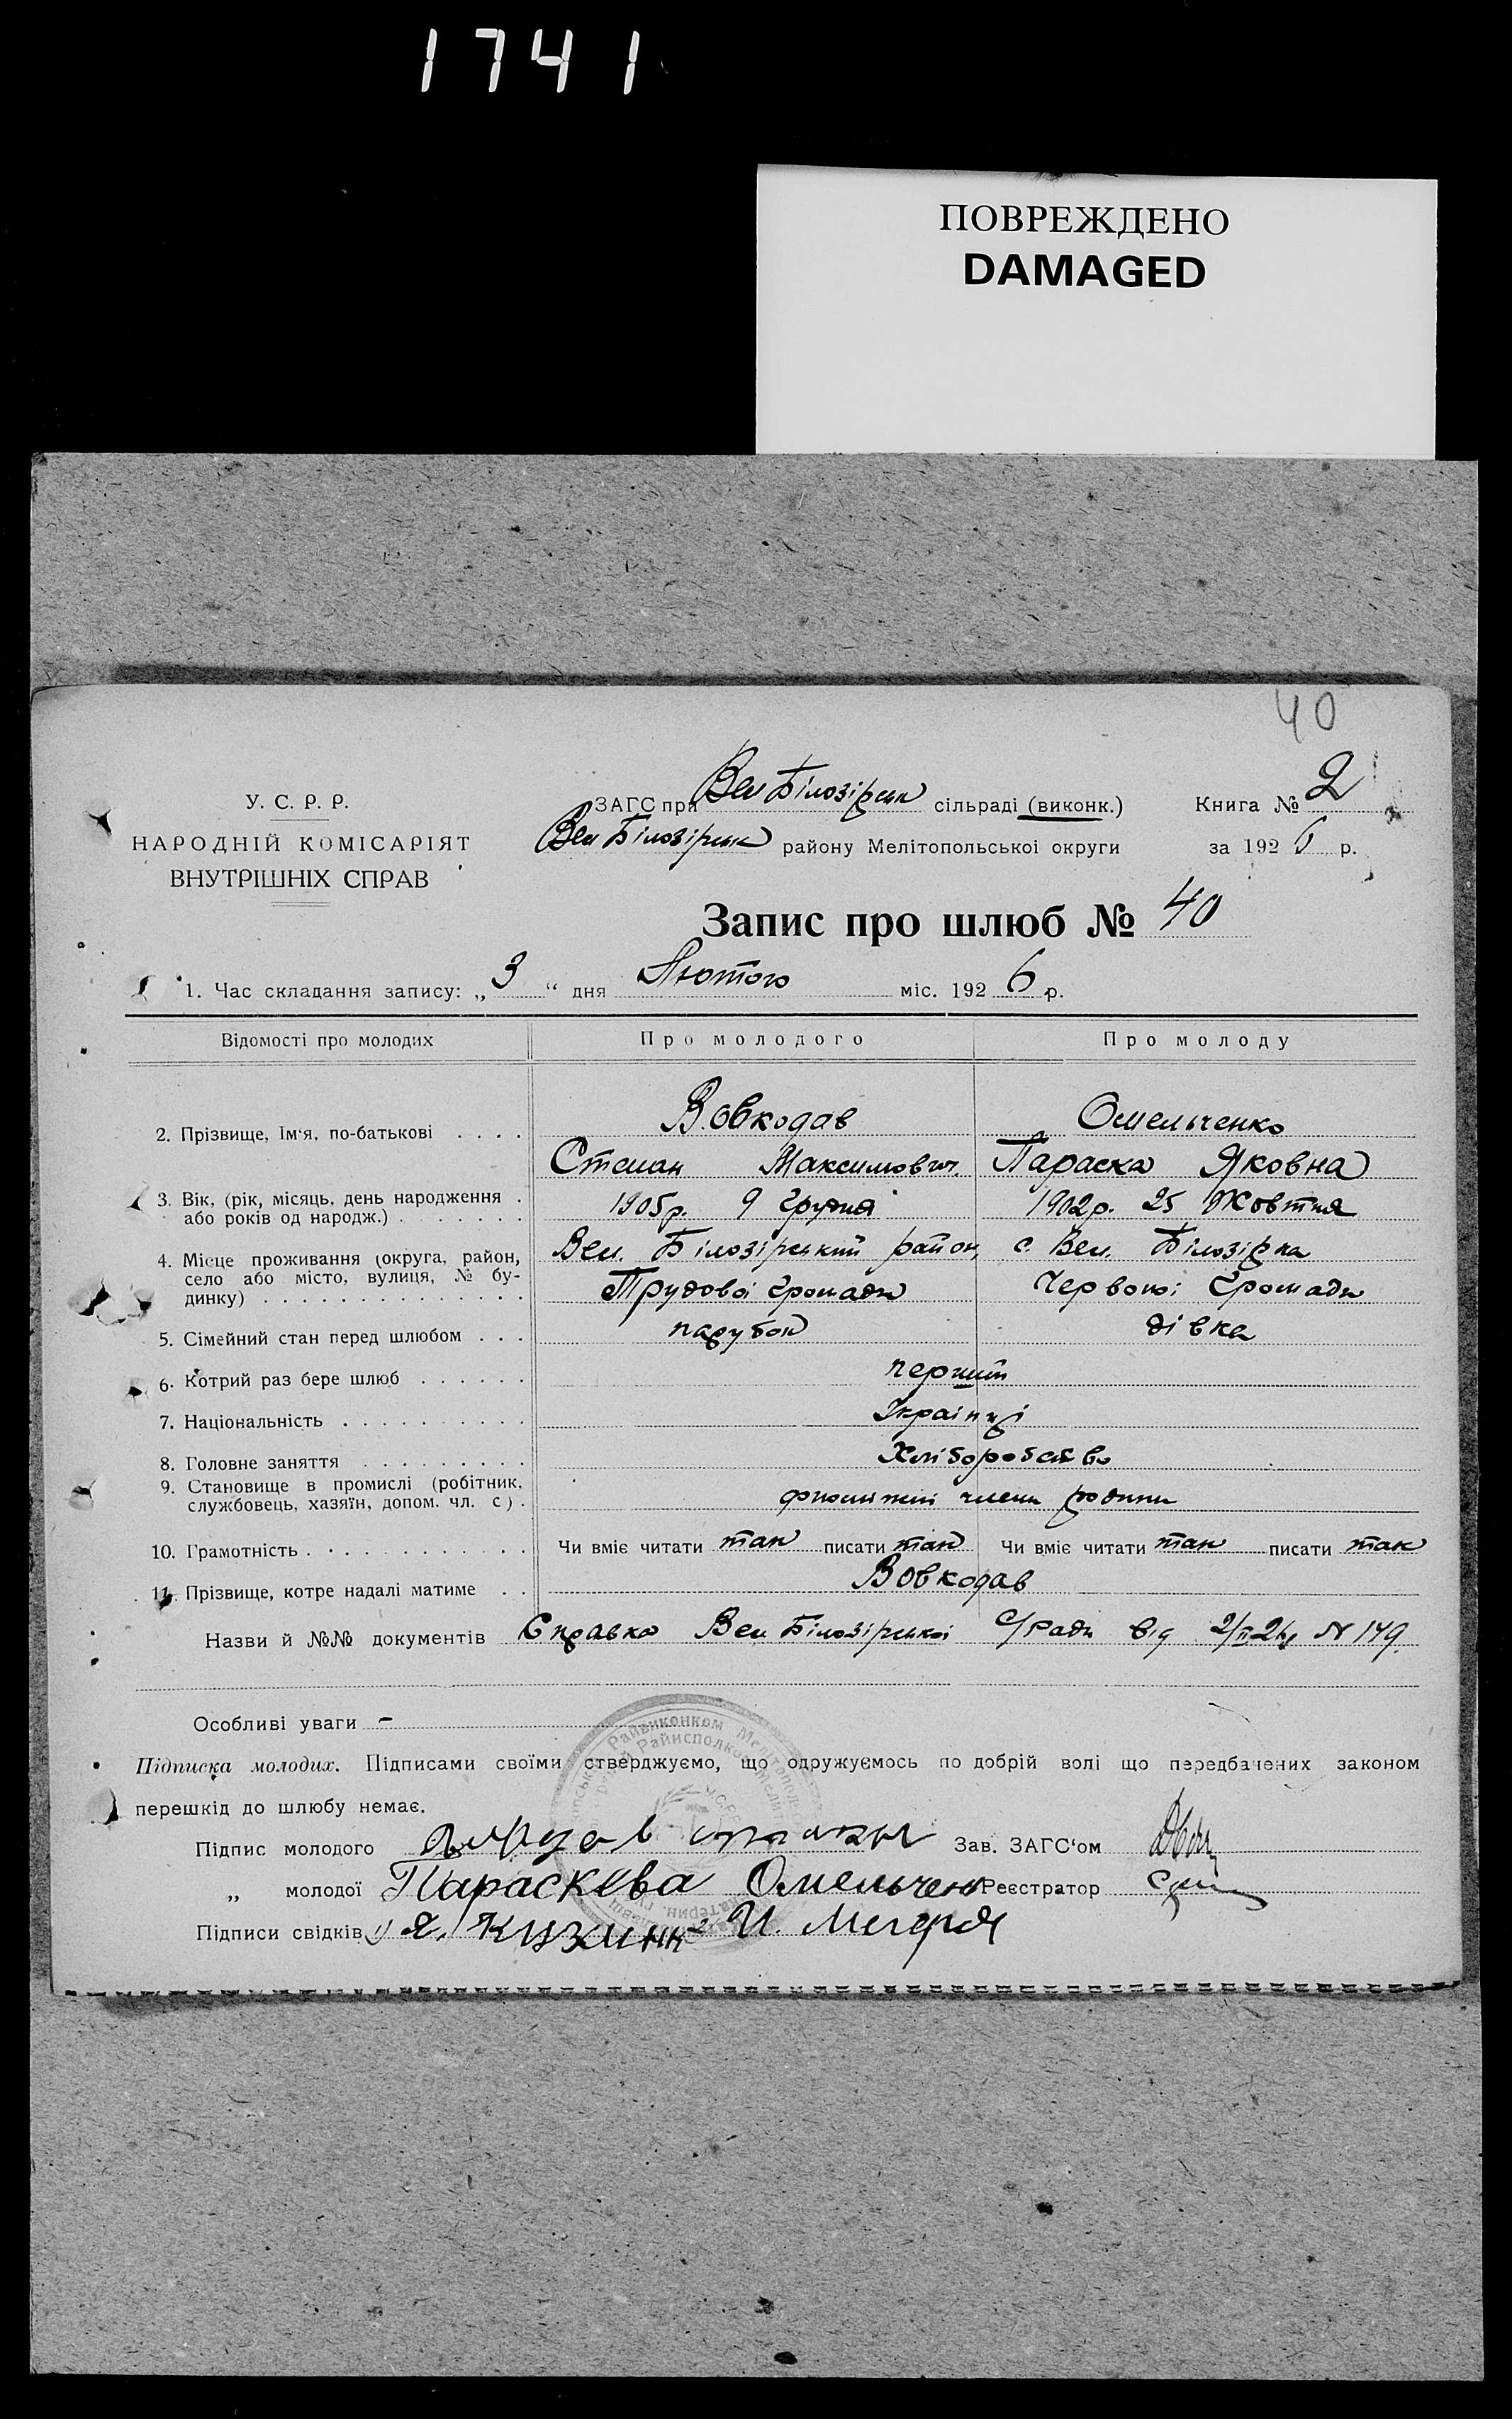 1741
ПОВРЕЖДЕНО
DAMAGED
40
У. С. Р. Р.
НАРОДНІЙ КОМІСАРІЯТ
ВНУТРІШНІХ СПРАВ
ЗАГС при Вел Білозірськ сільраді (виконк.)
Вел Білозірськ району Мелітопольскої округи
Книга № 2
за 1926 р.
Запис про шлюб № 40
1. Час складання запису: „3“ дня Лютого міс. 1926 р.
Відомості про молодих Про молодого Про молоду
2. Прізвище, Ім'я, по-батькові . . . . Вовкодав Омельченко
Степан Максимович Параска Яковна
3. Вік, (рік, місяць, день народження . або років од народж.) . . . . . . . 1905р. 9 грудня 1902р. 25 Жовтня
4. Місце проживання (округа, район, Вел. Білозірський район, с. Вел. Білозірка
село або місто, вулиця, № бу-
динку) . . . . . . . . . . . . . . Трудової громади Червоної Громади
5. Сімейний стан перед шлюбом . . . парубок дівка
6. Котрий раз бере шлюб . . . . . . перший
7. Національність . . . . . . . . . . Українці
8. Головне заняття . . . . . . . . . Хліборобство
9. Становище в промислі (робітник,
службовець, хазяїн, допом. чл. с) . члени родини
10. Грамотність . . . . . . . . . . . Чи вміє читати так писати так Чи вміє читати так писати так
11. Прізвище, котре надалі матиме . . Вовкодав
Назви й №№ документів Справка Вел Білозірської С/Ради від 2/II 26 N 149.
Особливі уваги –
Підписка молодих. Підписами своїми стверджуємо, що одружуємось по добрій волі що передбачених законом
перешкід до шлюбу немає.
Підпис молодого Зав. ЗАГС'ом
„ молодої Параскева Омельченк Реєстратор
Підписи свідків 1) Я. 2 И.